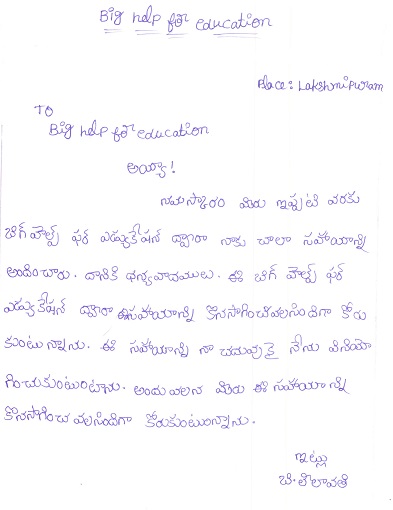 Big help for education
Place: Lakshmipuram
TO
Big help for education
అయ్యా!
నమస్కారం మీరు ఇప్పటి వరకు
బిగ్ హెల్ప్ ఫర్ ఎడ్యుకేషన్ ద్వారా నాకు చాలా సహాయాన్ని
అందించారు. దానికి ధన్యవాదములు. ఈ బిగ్ హెల్ప్ ఫర్
ఎడ్యుకేషన్ ద్వారా ఈ సహాయాన్ని కొనసాగించవలసిందిగా కోరు
కుంటున్నాను. ఈ సహాయాన్ని నా చదువుకై నేను వినియో
గించుకుంటుంటాను. అందువలన మీరు ఈ సహాయాన్ని
కొనసాగించ వలసిందిగా కోరుకుంటున్నాను.
ఇట్లు
బి. లీలావతి